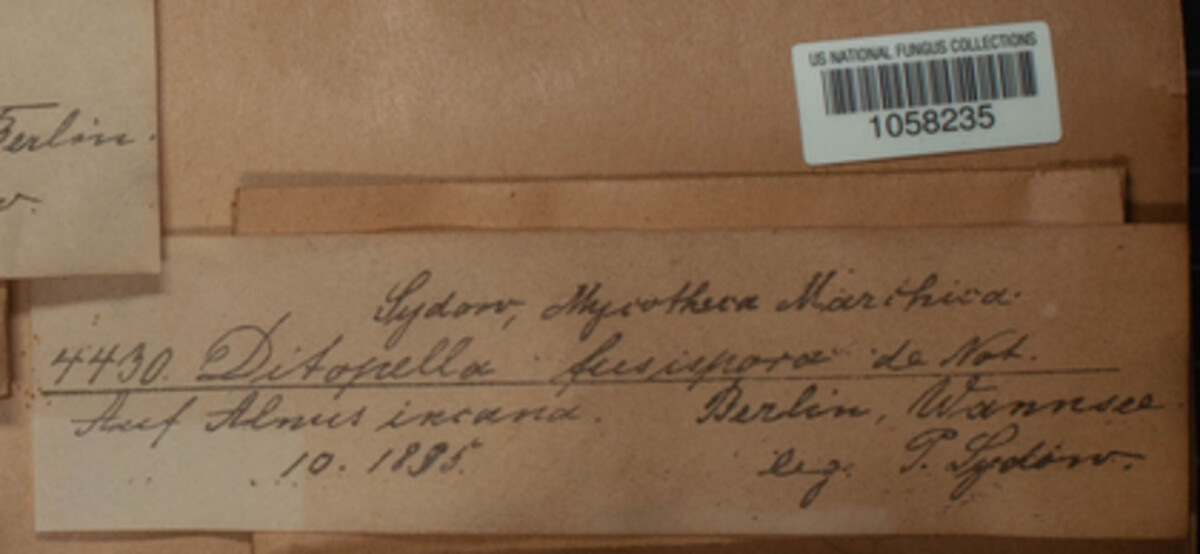 US NATIONAL FUNGUS COLLECTIONS
1058235
Berlin.
w.
Sydow, Mycotheca Marchica.
4430. Ditopella fusispora de Not.
Auf Alnus incana. Berlin, Wannsee
10. 1895. leg. P. Sydow.